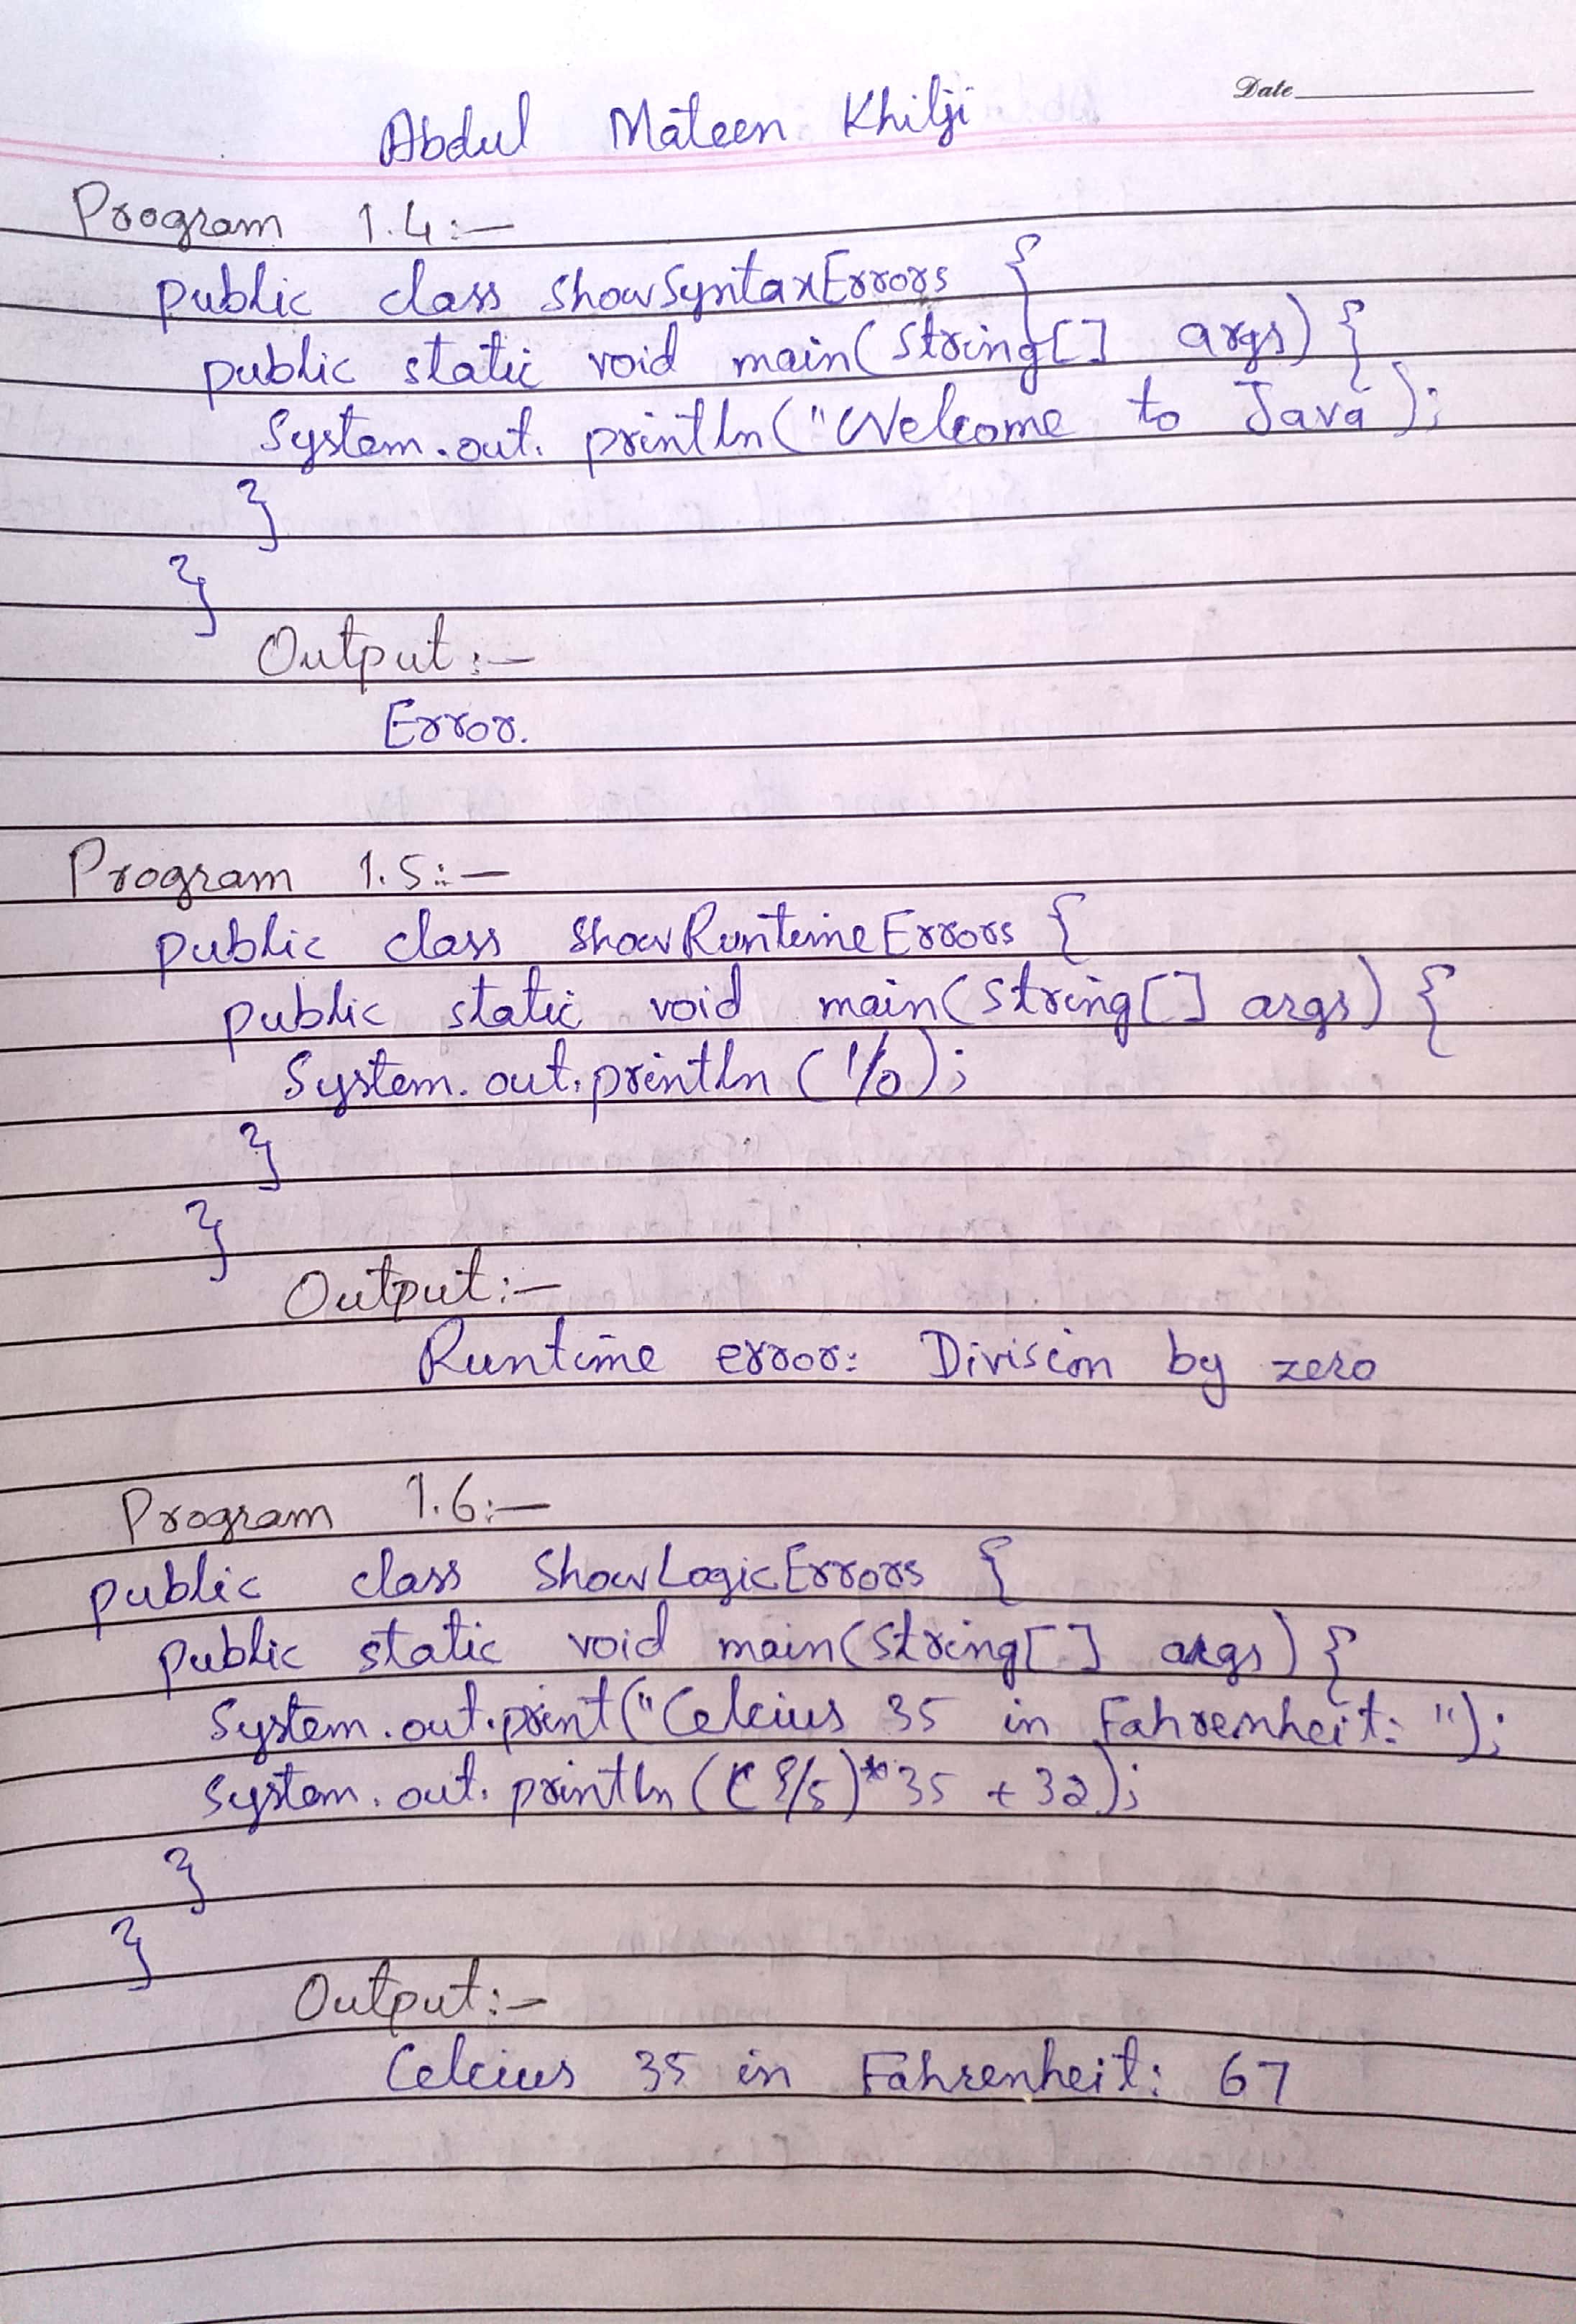 Date
Abdul Mateen Khilji
Program 1.4:-
public class ShowSyntaxErrors {
public static void main(String[] args) {
System.out.println("Welcome to Java);
}
}
Output:-
Error.
Program 1.5:-
public class ShowRuntimeErrors {
public static void main(String[] args) {
System.out.println(1/0);
}
}
Output:-
Runtime error: Division by zero
Program 1.6:-
public class ShowLogicErrors {
public static void main(String[] args) {
System.out.print("Celcius 35 in Fahrenheit: ");
System.out.println((9/5)*35 + 32);
}
}
Output:-
Celcius 35 in Fahrenheit: 67